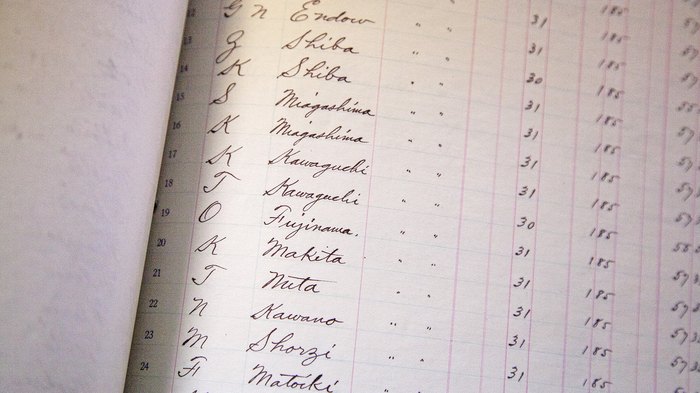 12 G n Endow " " 31 185
13 Z Shiba " " 31 185
14 K Shiba " " 30 185
15 S Miagashima " " 31 185
16 K Miagashima " " 31 185
17 K Kawaguchi " " 31 185
18 T Kawaguchi " " 31 185
19 O Fujinama. " " 30 185
20 K Makita " " 31 185
21 T Nuta " " 31 185
22 N Kawano " " 31 185
23 M Shorzi " " 31 185
24 F Matocki " " 31 185